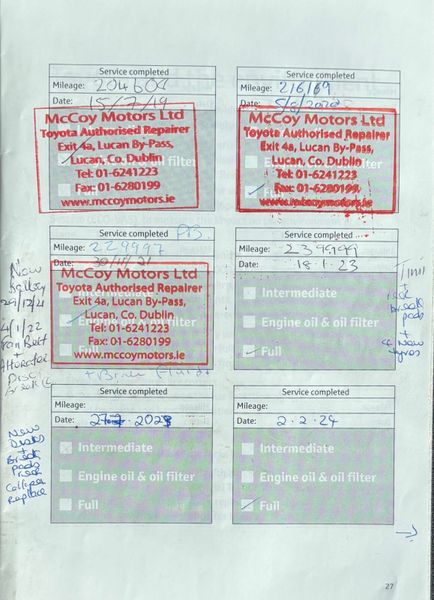 Service completed
Mileage: 204608
Date: 15/7/19
McCoy Motors Ltd
Toyota Authorised Repairer
Exit 4a, Lucan By-Pass,
Lucan, Co. Dublin
Tel: 01-6241223
Fax: 01-6280199
www.mccoymotors.ie
Service completed
Mileage: 216169
Date: 5/8/2020
McCoy Motors Ltd
Toyota Authorised Repairer
Exit 4a, Lucan By-Pass,
Lucan, Co. Dublin
Tel: 01-6241223
Fax: 01-6280199
www.mccoymotors.ie
Service completed
Mileage: 229997
Date: 30/11/21
McCoy Motors Ltd
Toyota Authorised Repairer
Exit 4a, Lucan By-Pass,
Lucan, Co. Dublin
Tel: 01-6241223
Fax: 01-6280199
www.mccoymotors.ie
+ Brake Fluid
New
29/12/21
4/1/22
Belt
+
Service completed
Mileage: 239999
Date: 18.1.23
Intermediate
Engine oil & oil filter
Full
+
pads
+
4 New
Tyres
Service completed
Mileage:
Date: 2023
Intermediate
Engine oil & oil filter
Full
New
+
pads
Replace
Service completed
Mileage:
Date: 2.2.24
Intermediate
Engine oil & oil filter
Full
27